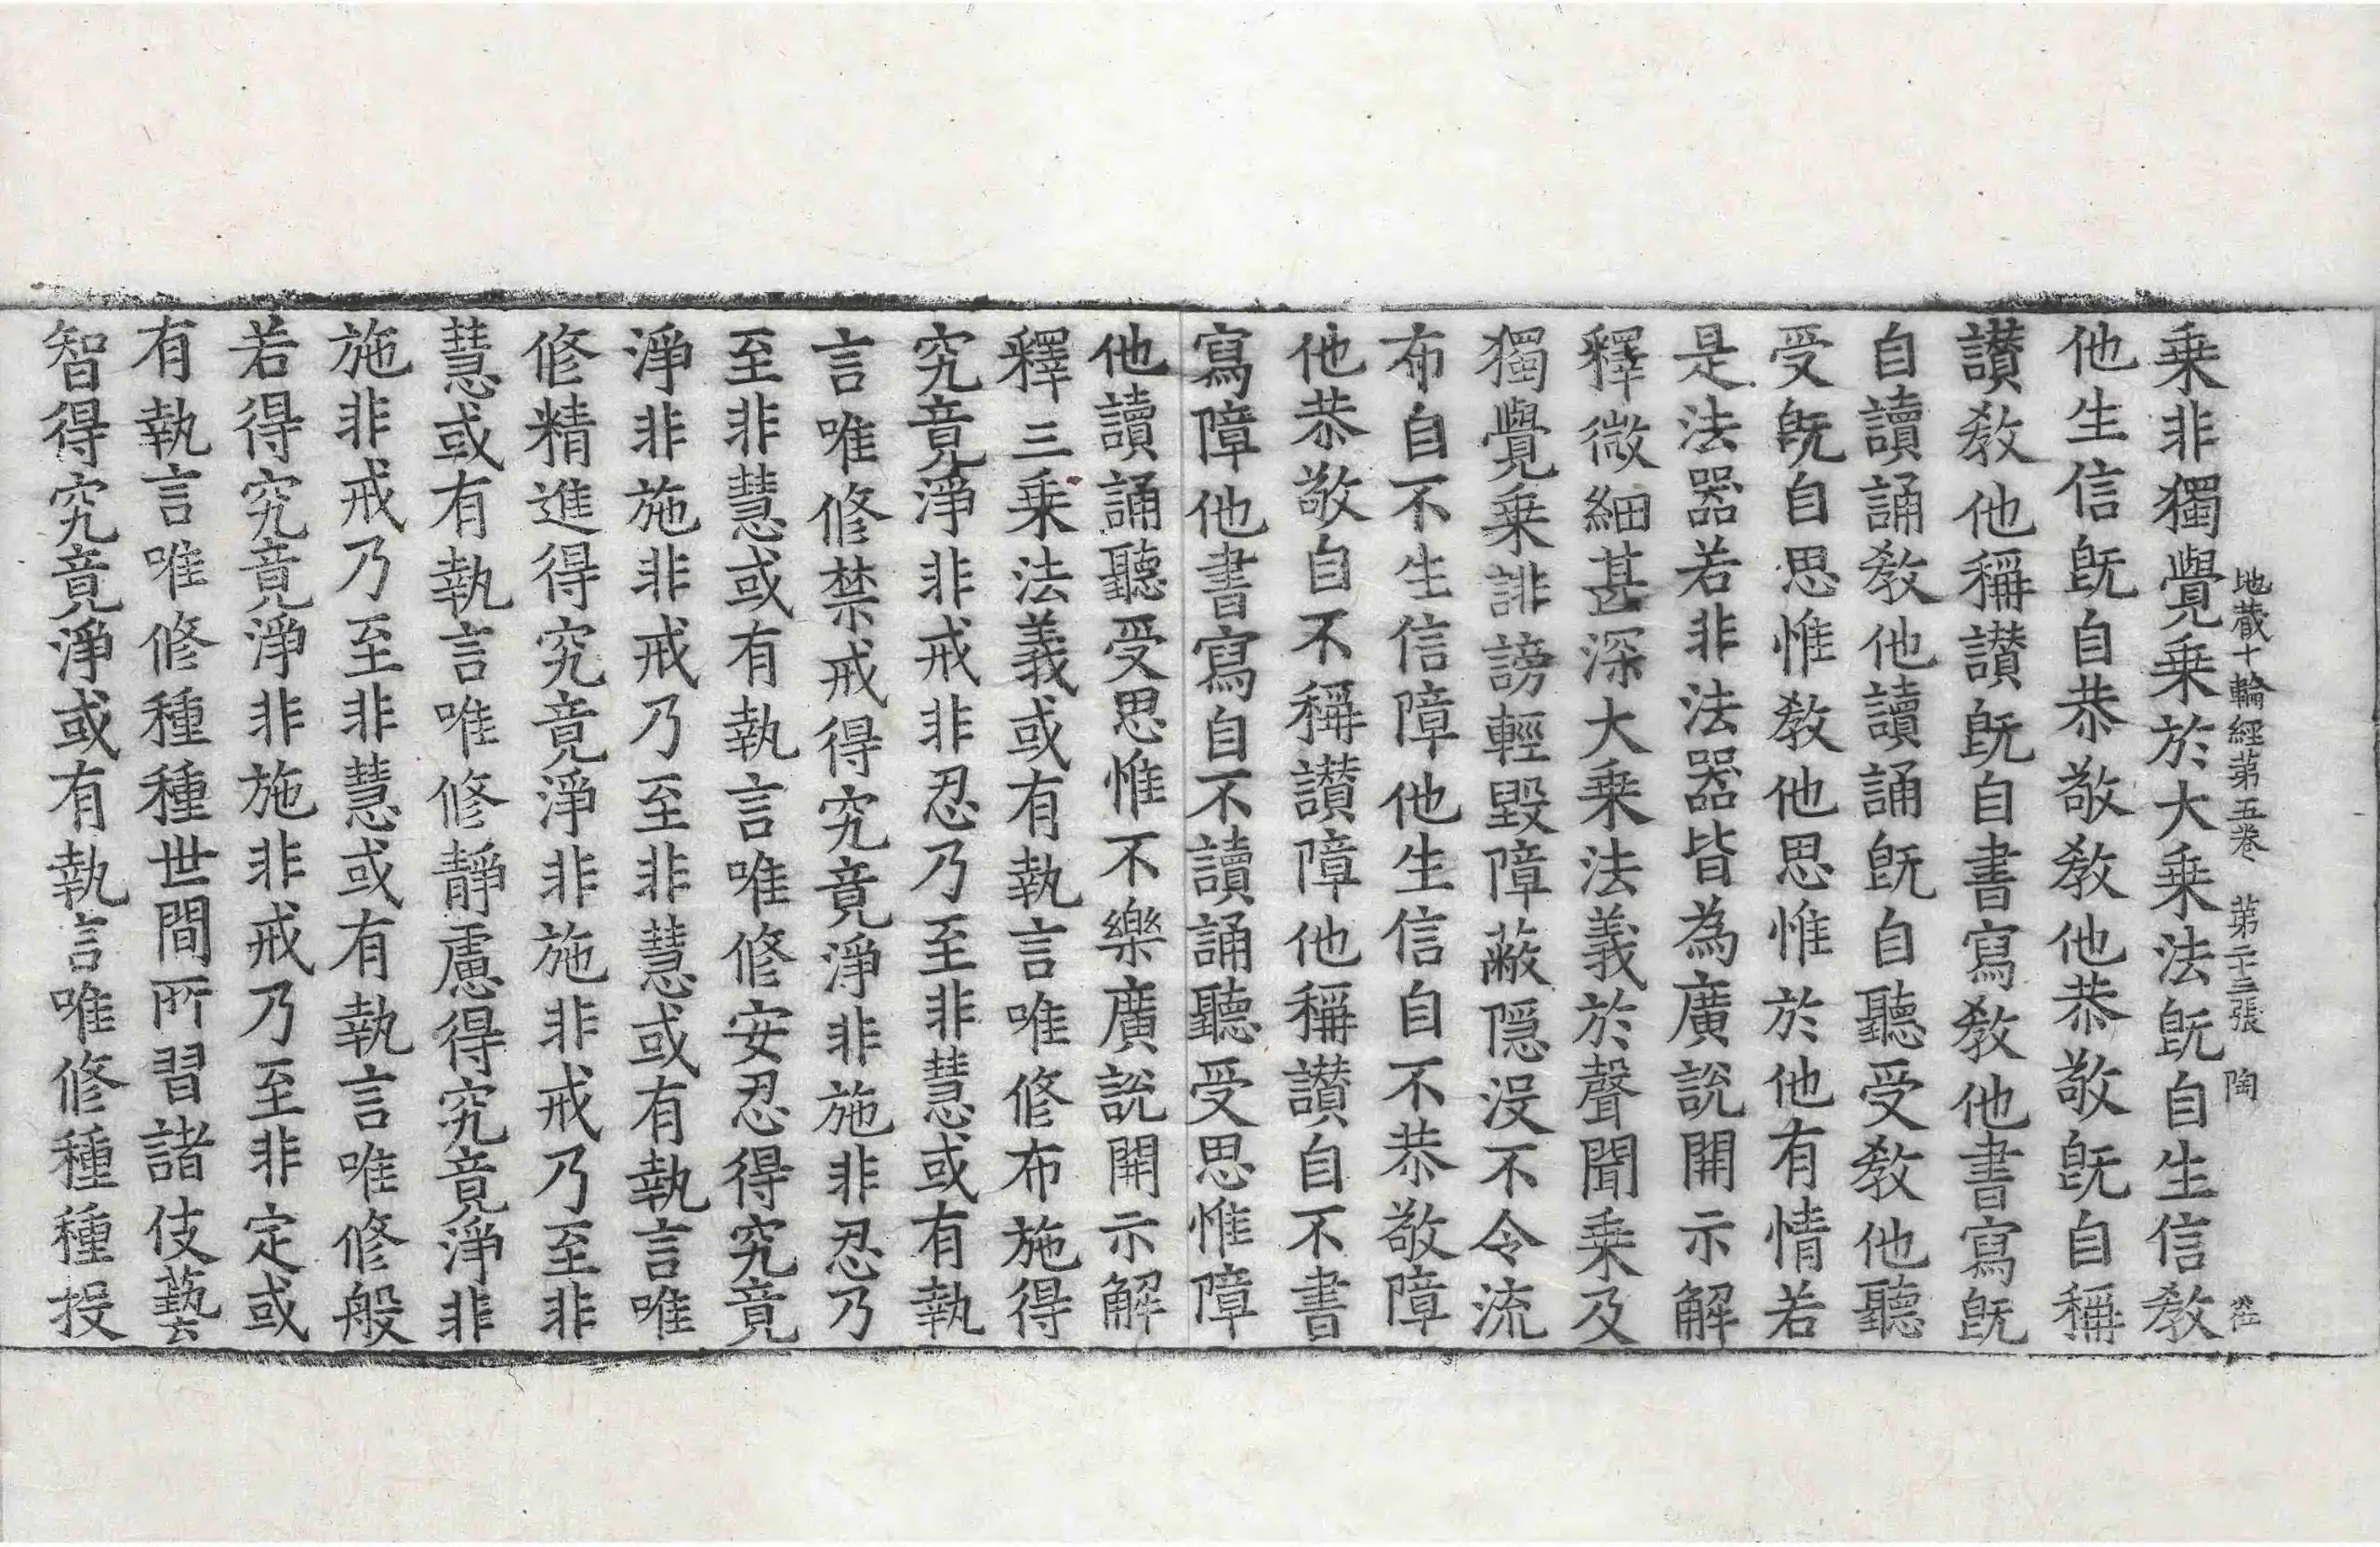 地蔵十輪經苐五卷 苐二十三張 陶
乗非獨覺乗於大乗法旣自生信敎
他生信旣自恭敬敎他恭敬旣自稱
讃敎他稱讃旣自書寫敎他書寫旣
自讀誦敎他讀誦旣自聽受敎他聽
受旣自思惟敎他思惟於他有情若
是法器若非法器皆為廣說開示解
釋微細甚深大乗法義於聲聞乗及
獨覺乗誹謗輕毀障蔽隱没不令流
布自不生信障他生信自不恭敬障
他恭敬自不稱讃障他稱讃自不書
寫障他書寫自不讀誦聽受思惟障
他讀誦聽受思惟不樂廣說開示解
釋三乗法義或有執言唯修布施得
究竟淨非戒非忍乃至非慧或有執
言唯修禁戒得究竟淨非施非忍乃
至非慧或有執言唯修安忍得究竟
淨非施非戒乃至非慧或有執言唯
修精進得究竟淨非施非戒乃至非
慧或有執言唯修靜慮得究竟淨非
施非戒乃至非慧或有執言唯修般
若得究竟淨非施非戒乃至非定或
有執言唯修種種世間所習諸伎藝
智得究竟淨或有執言唯修種種投